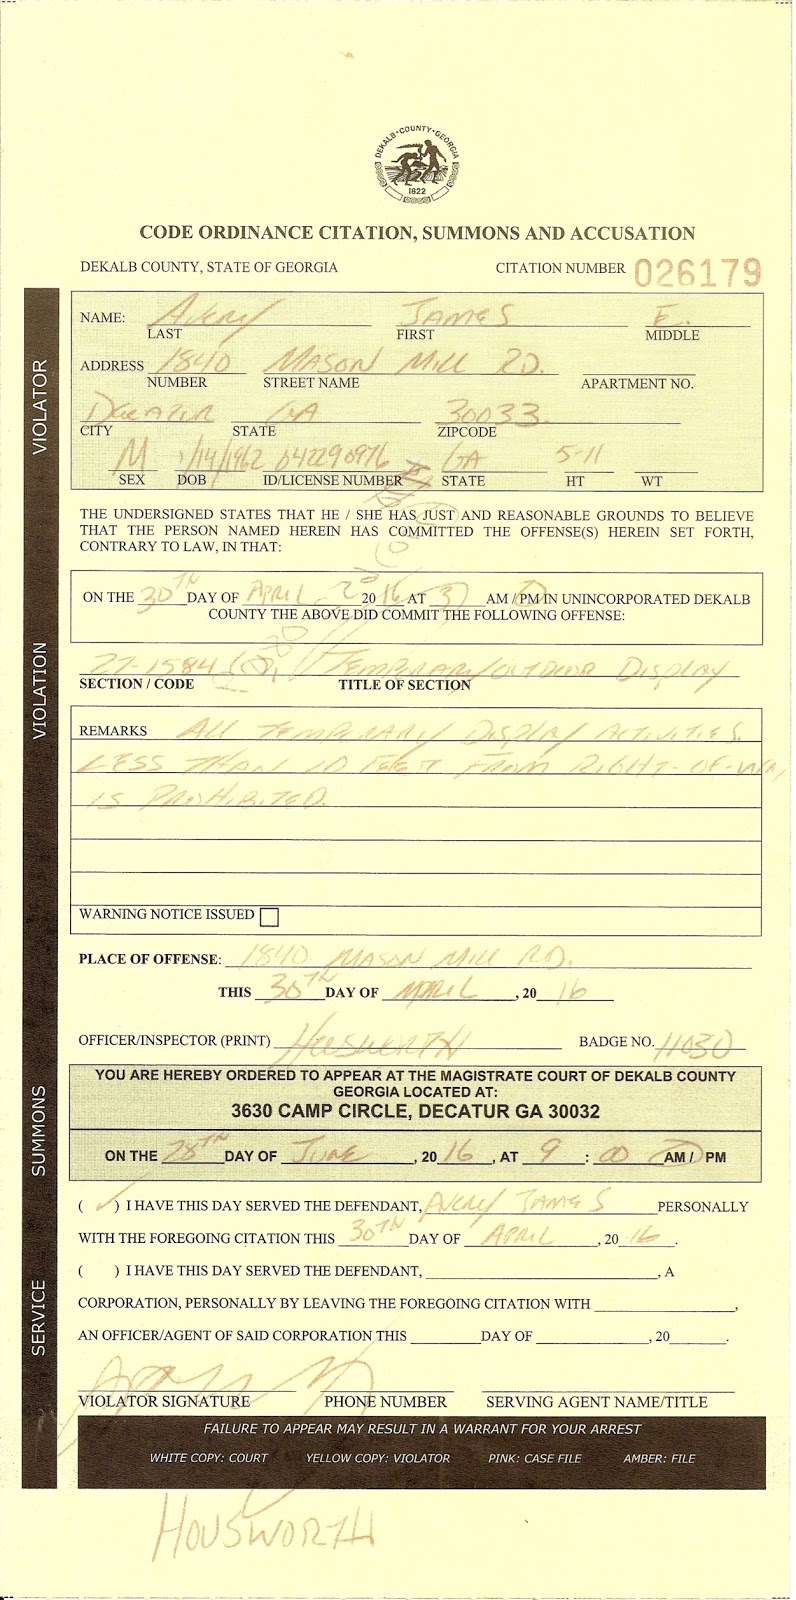 DEKALB·COUNTY·GEORGIA
1822
CODE ORDINANCE CITATION, SUMMONS AND ACCUSATION
DEKALB COUNTY, STATE OF GEORGIA CITATION NUMBER 026179
VIOLATOR
NAME: Avery JAMES E.
LAST FIRST MIDDLE
ADDRESS 1840 MASON MILL RD.
NUMBER STREET NAME APARTMENT NO.
GA 30033
CITY STATE ZIPCODE
M 1/14/1962 042290976 GA 5-11
SEX DOB ID/LICENSE NUMBER STATE HT WT
THE UNDERSIGNED STATES THAT HE / SHE HAS JUST AND REASONABLE GROUNDS TO BELIEVE
THAT THE PERSON NAMED HEREIN HAS COMMITTED THE OFFENSE(S) HEREIN SET FORTH,
CONTRARY TO LAW, IN THAT:
VIOLATION
ON THE 30TH DAY OF APRIL 2016 AT 3 AM / PM IN UNINCORPORATED DEKALB
COUNTY THE ABOVE DID COMMIT THE FOLLOWING OFFENSE:
27-1584 TEMPORARY OUTDOOR DISPLAY
SECTION / CODE TITLE OF SECTION
REMARKS ALL TEMPORARY DISPLAY ACTIVITIES
LESS THAN 10 FEET FROM RIGHT-OF-WAY
IS PROHIBITED.
WARNING NOTICE ISSUED
PLACE OF OFFENSE: 1840 MASON MILL RD.
THIS 30TH DAY OF APRIL, 2016
OFFICER/INSPECTOR (PRINT) HOUSWORTH BADGE NO. H030
SUMMONS
YOU ARE HEREBY ORDERED TO APPEAR AT THE MAGISTRATE COURT OF DEKALB COUNTY
GEORGIA LOCATED AT:
3630 CAMP CIRCLE, DECATUR GA 30032
ON THE 28TH DAY OF JUNE, 2016, AT 9:00 AM / PM
SERVICE
( ✓ ) I HAVE THIS DAY SERVED THE DEFENDANT, AVERY JAMES PERSONALLY
WITH THE FOREGOING CITATION THIS 30TH DAY OF APRIL, 2016.
( ) I HAVE THIS DAY SERVED THE DEFENDANT, , A
CORPORATION, PERSONALLY BY LEAVING THE FOREGOING CITATION WITH ,
AN OFFICER/AGENT OF SAID CORPORATION THIS DAY OF , 20 .
VIOLATOR SIGNATURE PHONE NUMBER SERVING AGENT NAME/TITLE
FAILURE TO APPEAR MAY RESULT IN A WARRANT FOR YOUR ARREST
WHITE COPY: COURT YELLOW COPY: VIOLATOR PINK: CASE FILE AMBER: FILE
HOUSWORTH